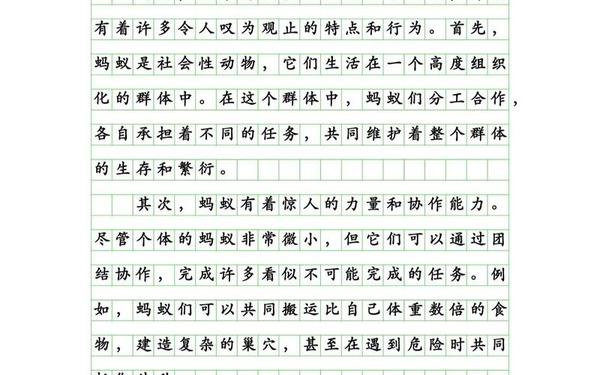 有着许多令人叹为观止的特点和行为。首先，
蚂蚁是社会性动物，它们生活在一个高度组织
化的群体中。在这个群体中，蚂蚁们分工合作，
各自承担着不同的任务，共同维护着整个群体
的生存和繁衍。
其次，蚂蚁有着惊人的力量和协作能力。
尽管个体的蚂蚁非常微小，但它们可以通过团
结协作，完成许多看似不可能完成的任务。例
如，蚂蚁们可以共同搬运比自己体重数倍的食
物，建造复杂的巢穴，甚至在遇到危险时共同